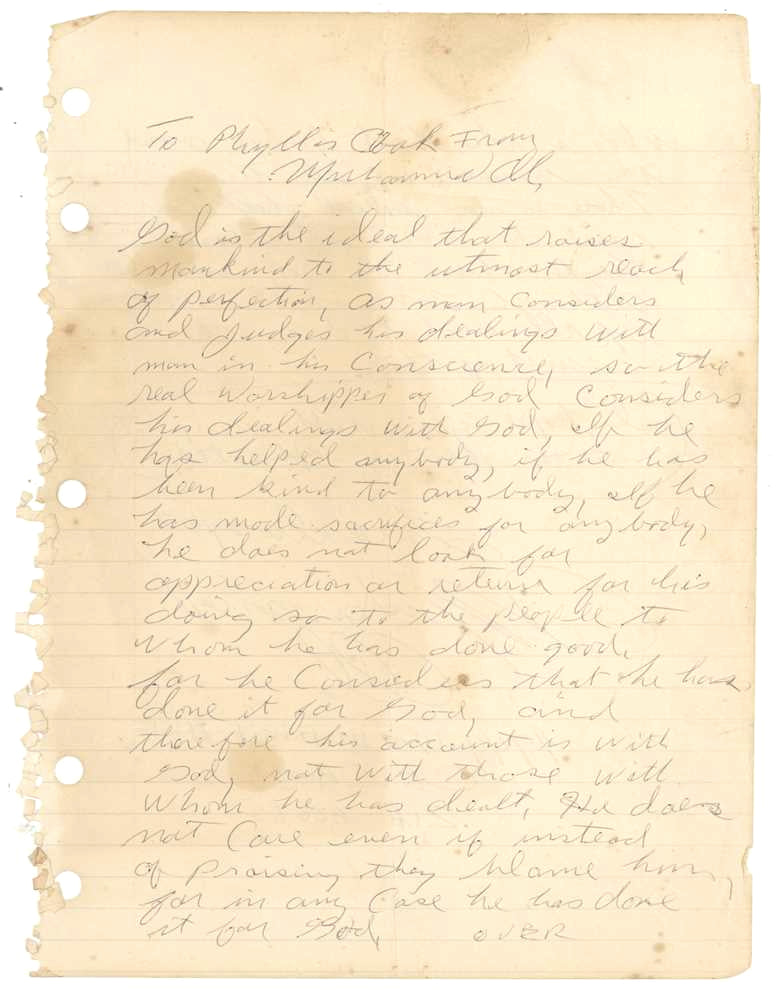 To Phyllis Cook From
Muhammad Ali
God is the ideal that raises
mankind to the utmost reach
of perfection, as man considers
and Judges his dealings with
man in his Conscience, so the
real worshipper of God Considers
his dealings with God, If he
has helped anybody, if he has
been kind to anybody, If he
has made sacrifices for anybody,
he does not look for
appreciation or return for his
doing so to the people to
whom he has done good,
for he Considers that he has
done it for God, and
therefore his account is with
God, not with those with
whom he has dealt, He does
not Care even if instead
of praising they blame him,
for in any Case he has done
it for God, OVER